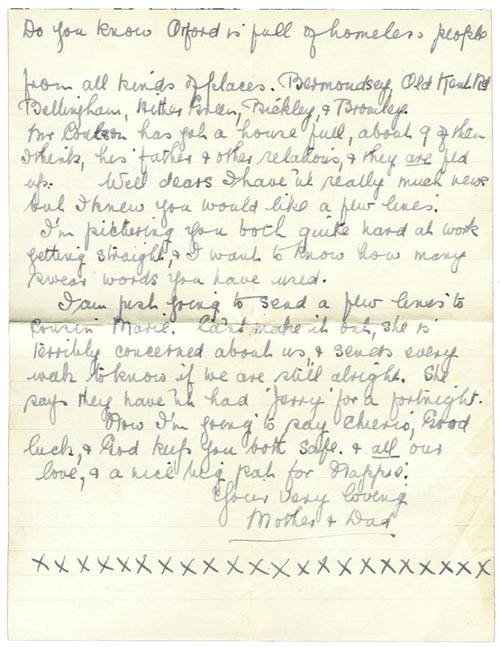 Do you know Orford is full of homeless people
from all kinds of places. Bermondsey, Old Kent Rd
Bellingham, Hither Green, Bickley, & Bromley.
Mr Coulson has got a house full, about 9 of them
I think, his father & other relations, & they are fed
up. Well dears I have'nt really much news
but I knew you would like a few lines.
I'm picturing you both quite hard at work
getting straight, & I want to know how many
swear words you have used.
I am just going to send a few lines to
Cousin Marie. Can't make it out, she is
terribly concerned about us, & sends every
week to know if we are still alright. She
says they have'nt had 'Jerry' for a fortnight.
Now I'm going to say cheerio, Good
luck, & God keep you both safe. & all our
love, & a nice big pat for Nappie.
Your very loving
Mother & Dad
xxxxxxxxxxxxxxxxxxxxxxxx